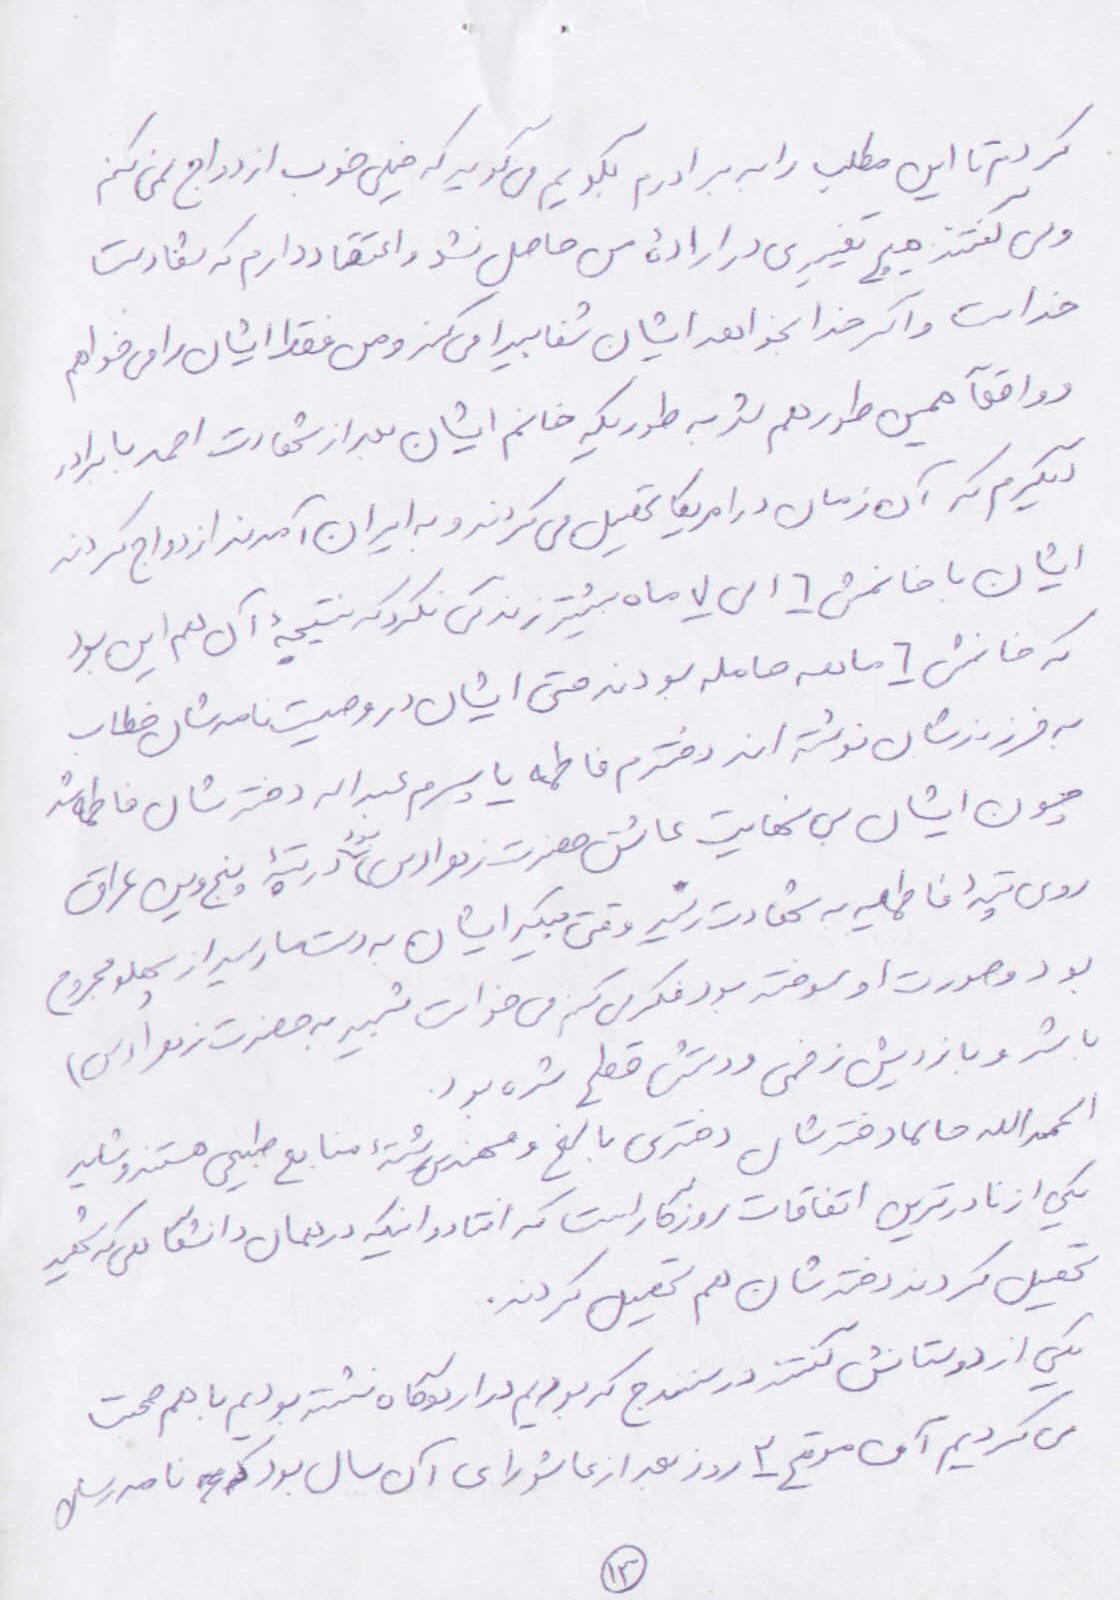 کردم تا این مطلب را به برادرم بگویم می گوید که خیلی خوب ازدواج نمی کنم
ولی گفتند هیچ تغییری در ارادهٔ من حاصل نشد و اعتقاد دارم که شفا دست
خداست و اگر خدا بخواهد ایشان شفا پیدا می کند و من فقط ایشان را می خواهم
و واقعاً همین طور هم شد به طوریکه خانم ایشان بعد از شهادت احمد با برادر
دیگرم که آن زمان در امریکا تحصیل می کردند و به ایران آمدند ازدواج کردند
ایشان با خانمش ٦ الی ٧ ماه بیشتر زندگی نکرد که نتیجهٔ آن هم این بود
که خانمش ٦ ماهه حامله بودند حتی ایشان در وصیت نامه شان خطاب
به فرزندشان نوشته اند دخترم فاطمه یا پسرم عبداله دخترشان فاطمه شد
چون ایشان بی نهایت عاشق حضرت زهرا (س) بود در تپهٔ پنجوین عراق
روی تپهٔ فاطمیه به شهادت رسید وقتی پیکر ایشان به دست ما رسید از پهلو مجروح
بود و صورت او سوخته بود فکر می کنم می خواست شبیه به حضرت زهرا (س)
باشد و بازویش زخمی و دستش قطع شده بود.
الحمدالله حالما دخترشان دختری بالغ و مهندس رشتهٔ منابع طبیعی هستند و شاید
یکی از نادرترین اتفاقات روزگار است که افتاد و اینکه در همان دانشگاهی که شهید
تحصیل کردند دخترشان هم تحصیل کردند.
یکی از دوستانش گفتند در سنندج که بودیم در اردوگاه نشسته بودیم با هم صحبت
می کردیم آن موقع ٣ روز بعد از عاشورای آن سال بود که نامه رسان
١٣